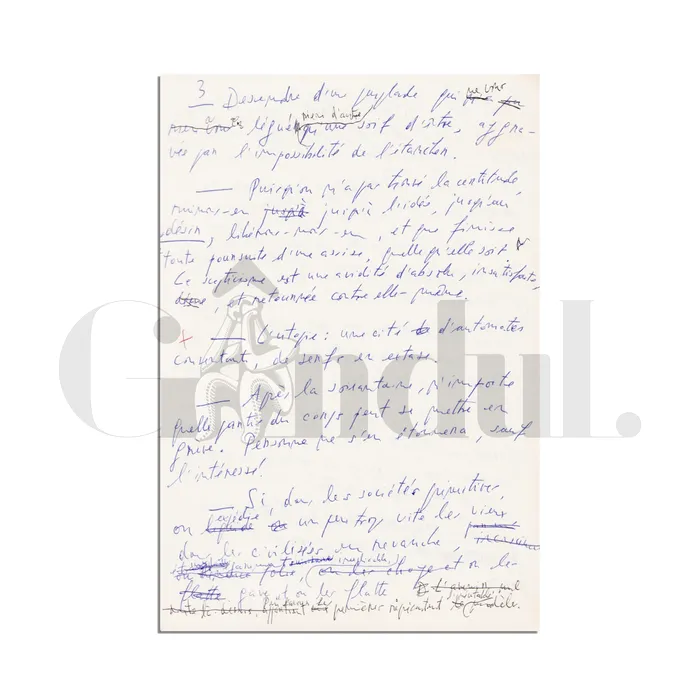 3 — Descendre d'une peuplade qui ne vous
légué qu'une soif d'être, aggra-
vée par l'impossibilité de l'étancher.
— Puisqu'on n'a pas trouvé la certitude,
ruinons-en jusqu'à jusqu'à l'idée, jusqu'au
désir, libérons-nous-en, et que finisse
toute poursuite d'une assise, quelle qu'elle soit.
Ce scepticisme est une avidité d'absolu, insatisfaite,
et retournée contre elle-même.
+ — L'utopie : une cité d'automates
consentants, de serfs en extase.
— Après la soixantaine, n'importe
quelle partie du corps peut se mettre en
grève. Personne ne s'en étonnera, sauf
l'intéressé.
— Si, dans les sociétés primitives,
on un peu trop vite les vieux
dans les civilisées en revanche,
on les charge et on les
flatte gave et on les flatte
premières
Gândul.